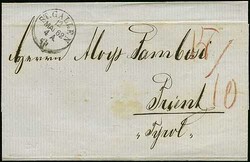 ST. GALLEN
Herrn Aloys Tambosi
Trient
Tyrol
15/10